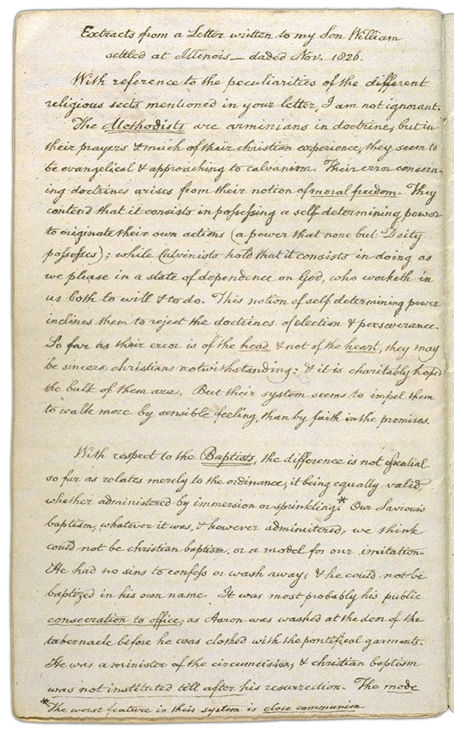 Extracts from a Letter written to my Son William
settled at Illinois — daded Nov. 1826.
With reference to the peculiarities of the different
religious sects mentioned in your letter, I am not ignorant.
The Methodists are arminians in doctrine, but in
their prayers & much of their christian experience, they seem to
be evangelical & approaching to calvanism. Their error concern-
ing doctrines arises from their notion of moral freedom. They
contend that it consists in possessing a self determining power
to originate their own actions (a power that none but Deity
possesses); while Calvinists hold that it consists in doing as
we please in a state of dependence on God, who worketh in
us both to will & to do. This notion of self determining power
inclines them to reject the doctrines of election & perseverance.
So far as their error is of the head & not of the heart, they may
be sincere christians notwithstanding; & it is charitably hoped
the bulk of them are. But their system seems to impel them
to walk more by sensible feeling, than by faith in the promises.
With respect to the Baptists, the difference is not essential
so far as relates merely to the ordinance, it being equally valid,
whether administered by immersion or sprinkling.* Our Saviour's
baptism, whatever it was, & however administered, we think
could not be christian baptism, or a model for our imitation.
He had no sins to confess or wash away; & he could not be
baptized in his own name. It was most probably his public
consecration to office; as Aaron was washed at the door of the
tabernacle before he was clothed with the pontifical garments.
He was a minister of the circumcision; & christian baptism
was not instituted till after his resurrection. The mode
*The worst feature in their system is close communion.